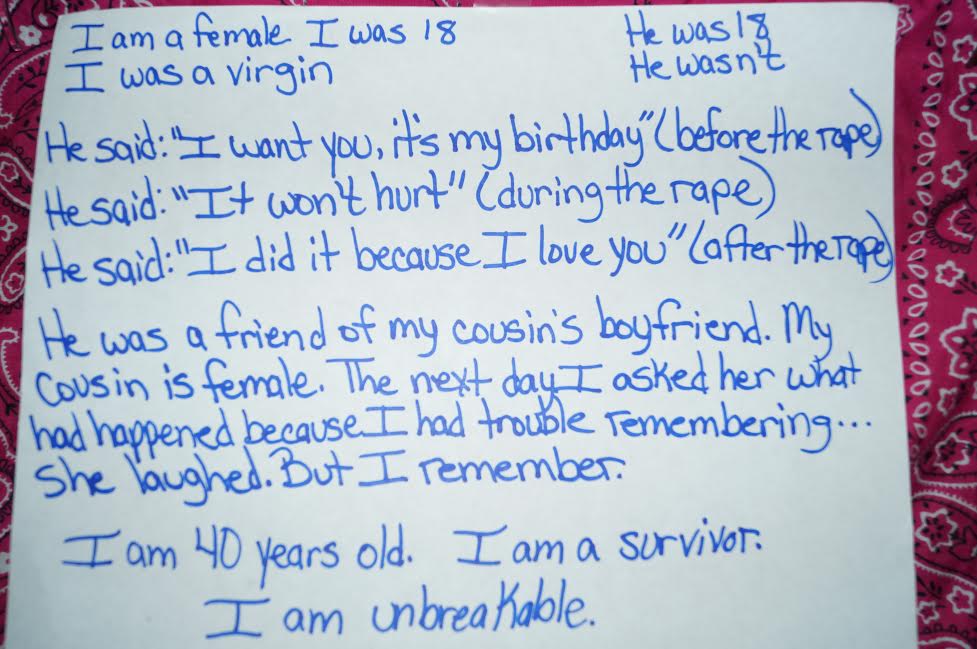 I am a female I was 18 He was 18
I was a virgin He wasn't
He said: "I want you, it's my birthday" (before the rape)
He said: "It won't hurt" (during the rape)
He said: "I did it because I love you" (after the rape)
He was a friend of my cousin's boyfriend. My
cousin is female. The next day I asked her what
had happened because I had trouble remembering...
She laughed. But I remember.
I am 40 years old. I am a survivor.
I am unbreakable.